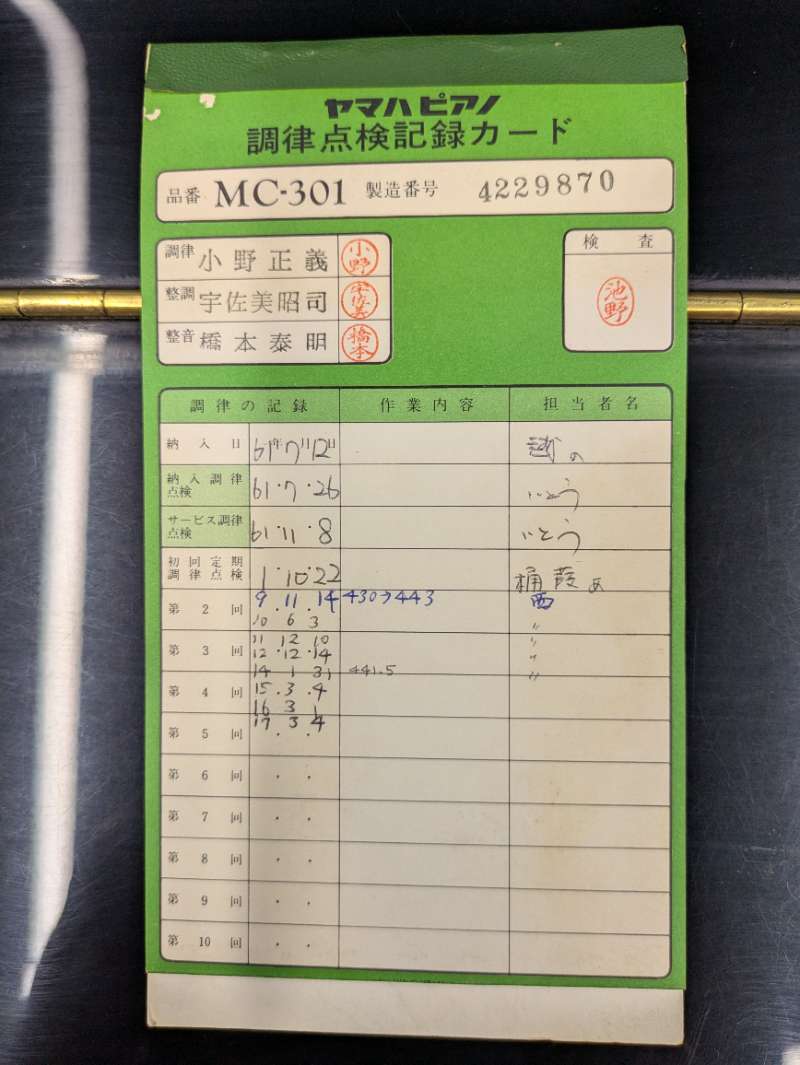 ヤマハピアノ
調律点検記録カード
品番 MC-301 製造番号 4229870
調律 小野正義 小野
整調 宇佐美昭司 宇佐美
整音 橋本泰明 橋本
検査
池野
調律の記録 作業内容 担当者名
納入日 61年7月12日
納入調律点検 61・7・26 いとう
サービス調律点検 61・11・8 いとう
初回定期調律点検 1・10・22
第2回 9.11.14 430→443 西
10 6 3 〃
第3回 11 12 10 〃
12・12・14 〃
14 1 31 441.5 〃
第4回 15.3.4
16 3 1
第5回 17 3 4
第6回 ・・
第7回 ・・
第8回 ・・
第9回 ・・
第10回 ・・